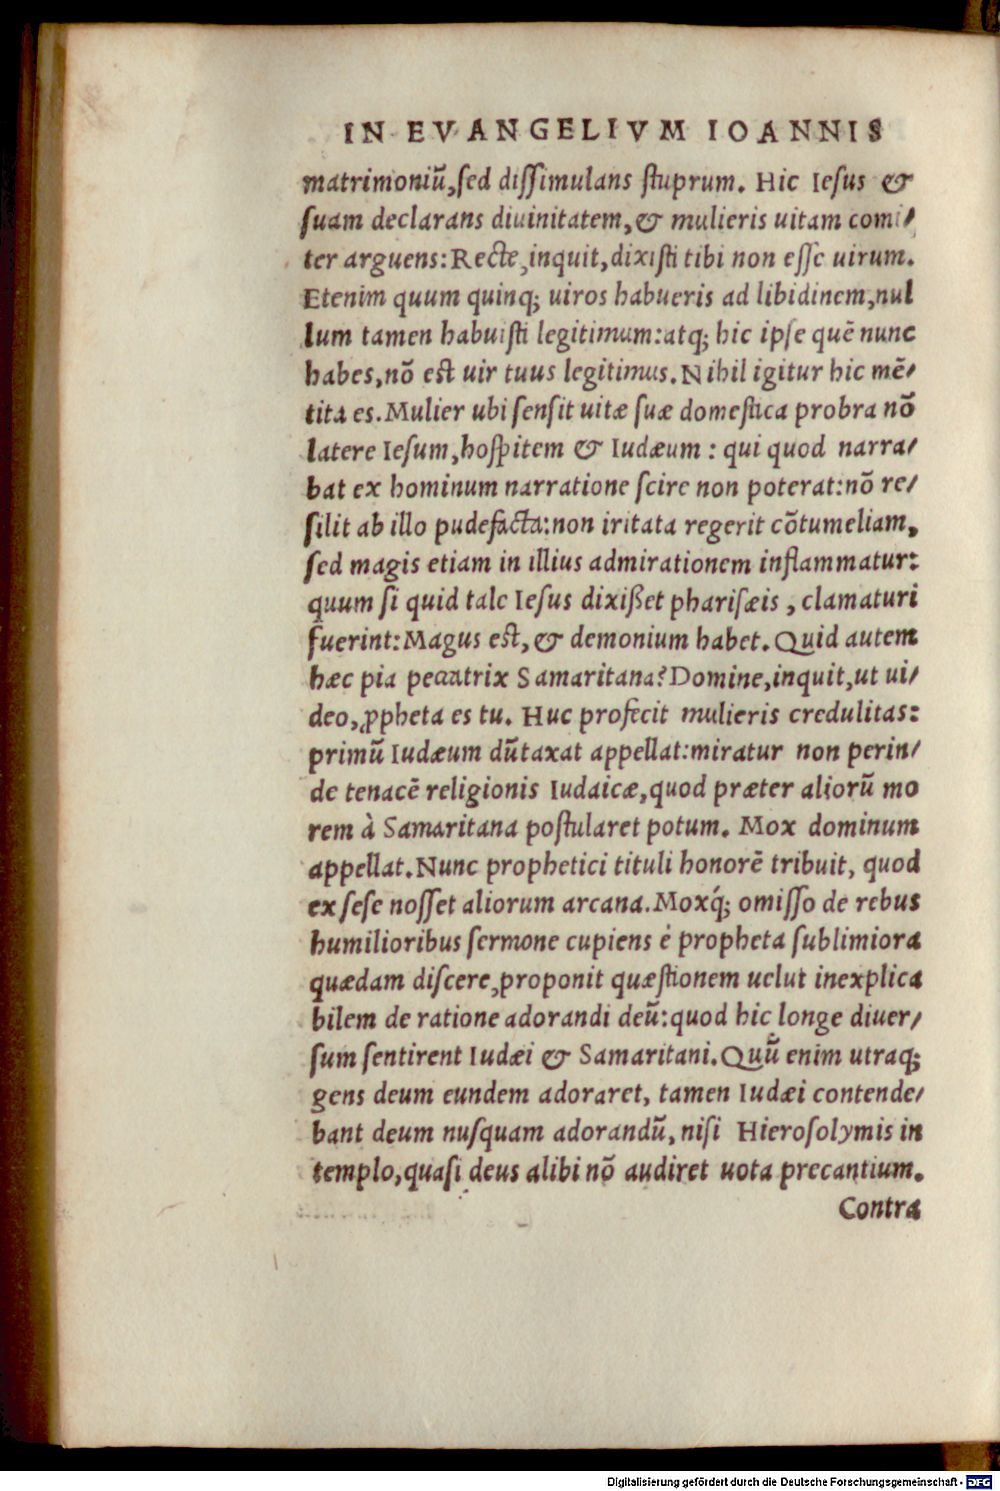 IN EVANGELIVM IOANNIS
matrimoniũ,ſed diſſimulans ſtuprum. Hic Ieſus &
ſuam declarans diuinitatem,& mulieris uitam comi/
ter arguens:Recte,inquit,dixiſti tibi non eſſe uirum.
Etenim quum quinq; uiros habueris ad libidinem,nul
lum tamen habuiſti legitimum:atq; hic ipſe quẽ nunc
habes,nõ eſt uir tuus legitimus.Nihil igitur hic mẽ/
tita es.Mulier ubi ſenſit uitæ ſuæ domeſtica probra nõ
latere Ieſum,hoſpitem & Iudæum : qui quod narra/
bat ex hominum narratione ſcire non poterat:nõ re/
ſilit ab illo pudefacta:non iritata regerit cõtumeliam,
ſed magis etiam in illius admirationem inflammatur:
quum ſi quid tale Ieſus dixißet phariſæis , clamaturi
fuerint:Magus eſt,& demonium habet.Quid autem
hæc pia peccatrix Samaritana?Domine,inquit,ut ui/
deo,ꝓpheta es tu. Huc profecit mulieris credulitas:
primũ Iudæum dũtaxat appellat:miratur non perin/
de tenacẽ religionis Iudaicæ,quod præter aliorũ mo
rem à Samaritana poſtularet potum. Mox dominum
appellat.Nunc prophetici tituli honorẽ tribuit, quod
ex ſeſe noſſet aliorum arcana.Moxq́; omiſſo de rebus
humilioribus ſermone cupiens è propheta ſublimiora
quædam diſcere,proponit quæſtionem uelut inexplica
bilem de ratione adorandi deũ:quod hic longe diuer/
ſum ſentirent Iudæi & Samaritani.Quũ enim utraq;
gens deum eundem adoraret, tamen Iudæi contende/
bant deum nuſquam adorandũ,niſi Hieroſolymis in
templo,quaſi deus alibi nõ audiret uota precantium.
Contra
Digitalisierung gefördert durch die Deutsche Forschungsgemeinschaft - DFG